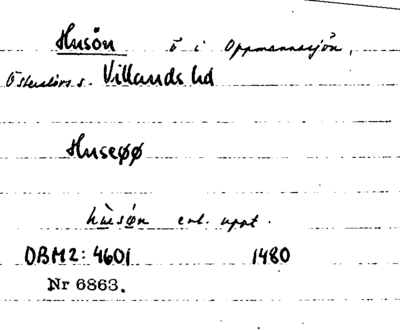 Husön ö i Oppmannasjön,
Österslövs s. Villands hd
Huseøø
hùsøn enl. uppt.
DBM2: 4601 1480
Nr 6863.